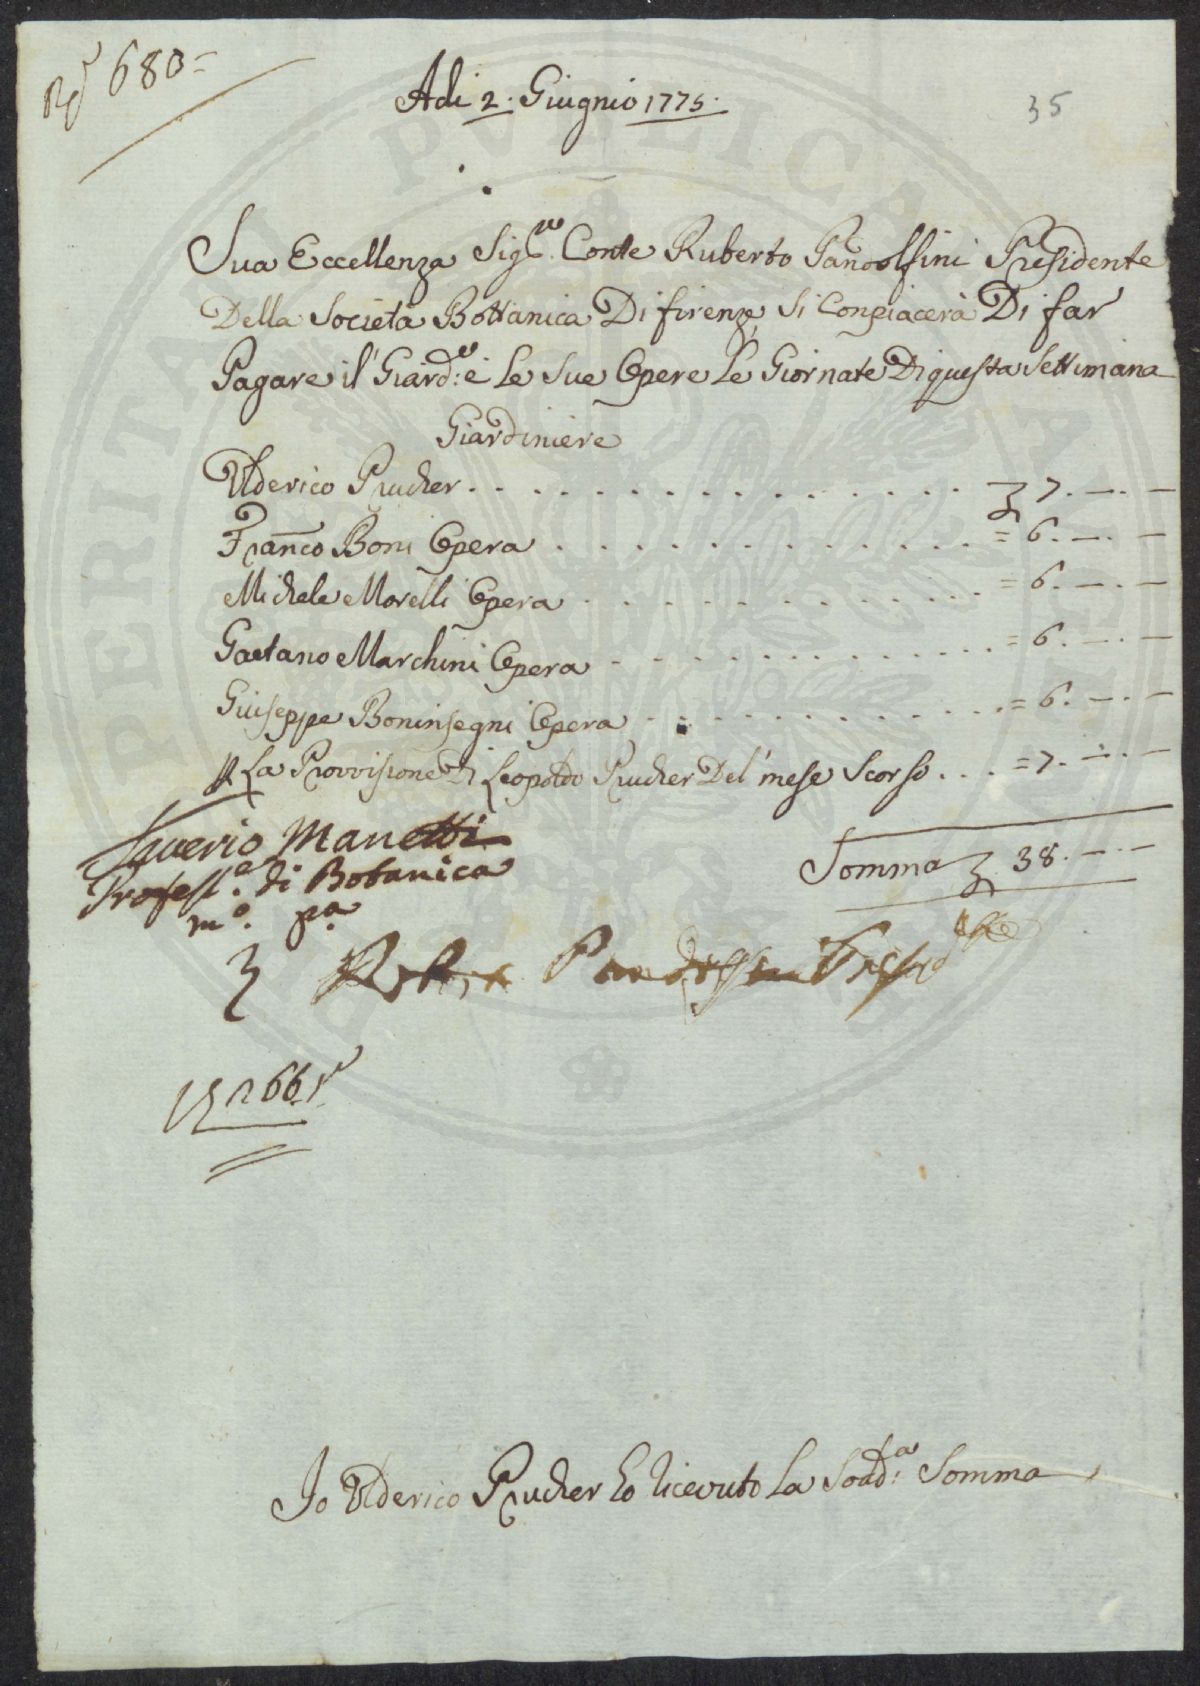 680=
Adi 2. Giugnio 1775.
35
Sua Eccellenza Sig.re Conte Ruberto Pandolfini Presidente
Della Società Bottanica Di firenze, si Conpiacerà Di far
Pagare il Giard:e e Le Sue Opere Le Giornate Di questa Settimana
Giardiniere
Ulderico Prucker . . . . . . . . . . . . . . . . 7. —. —
Franco Boni Opera . . . . . . . . . . . . . = 6. —. —
Michele Morelli Opera . . . . . . . . . . . . . = 6. —. —
Gaetano Marchini Opera . . . . . . . . . . . . = 6. —. —
Giuseppe Boninsegni Opera . . . . . . . . . . . = 6. —. —
La Provvisione Di Leopoldo Prucker Del mese Scorso . . . = 7. —. —
Saverio Manetti
Profess.e di Botanica
m.o p.a
Somma 38. —. —
Pandolfini
266
Io Ulderico Prucker ho ricevuto La Sodd:a Somma
PUBLICAE